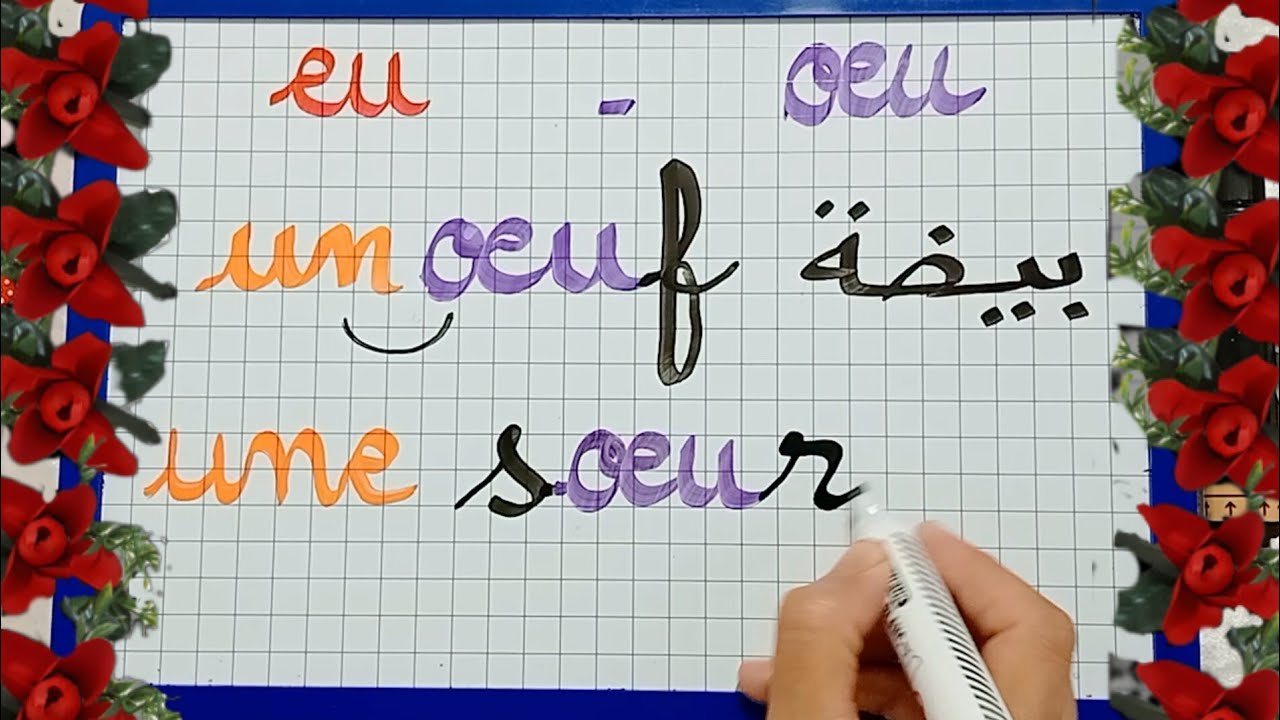 eu - oeu
un oeuf بيضة
une soeur